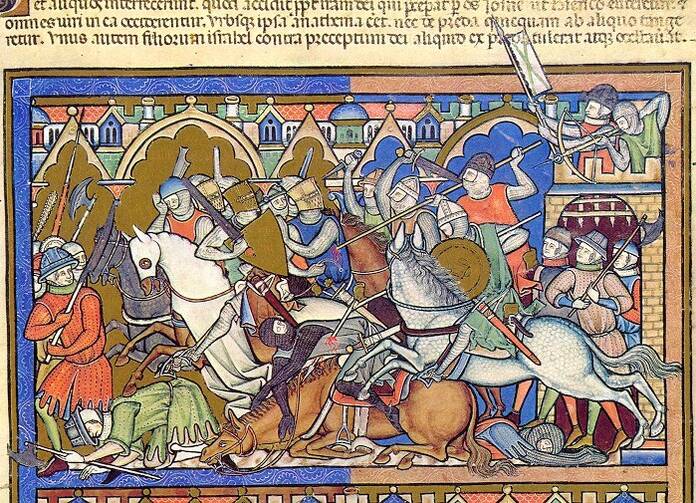 et aliquos interfecerunt. quod accidit ppt iram dei qui p os Iosue ut Iherico euerteretur. et
omnes uiri in ea occiderentur. Vrbsq; ipsa anathema eet. nec de preda quicquam ab aliquo tange
retur. Vnus autem filiorum israhel contra preceptum dei aliquid ex preda tulerat atq; occultauit.